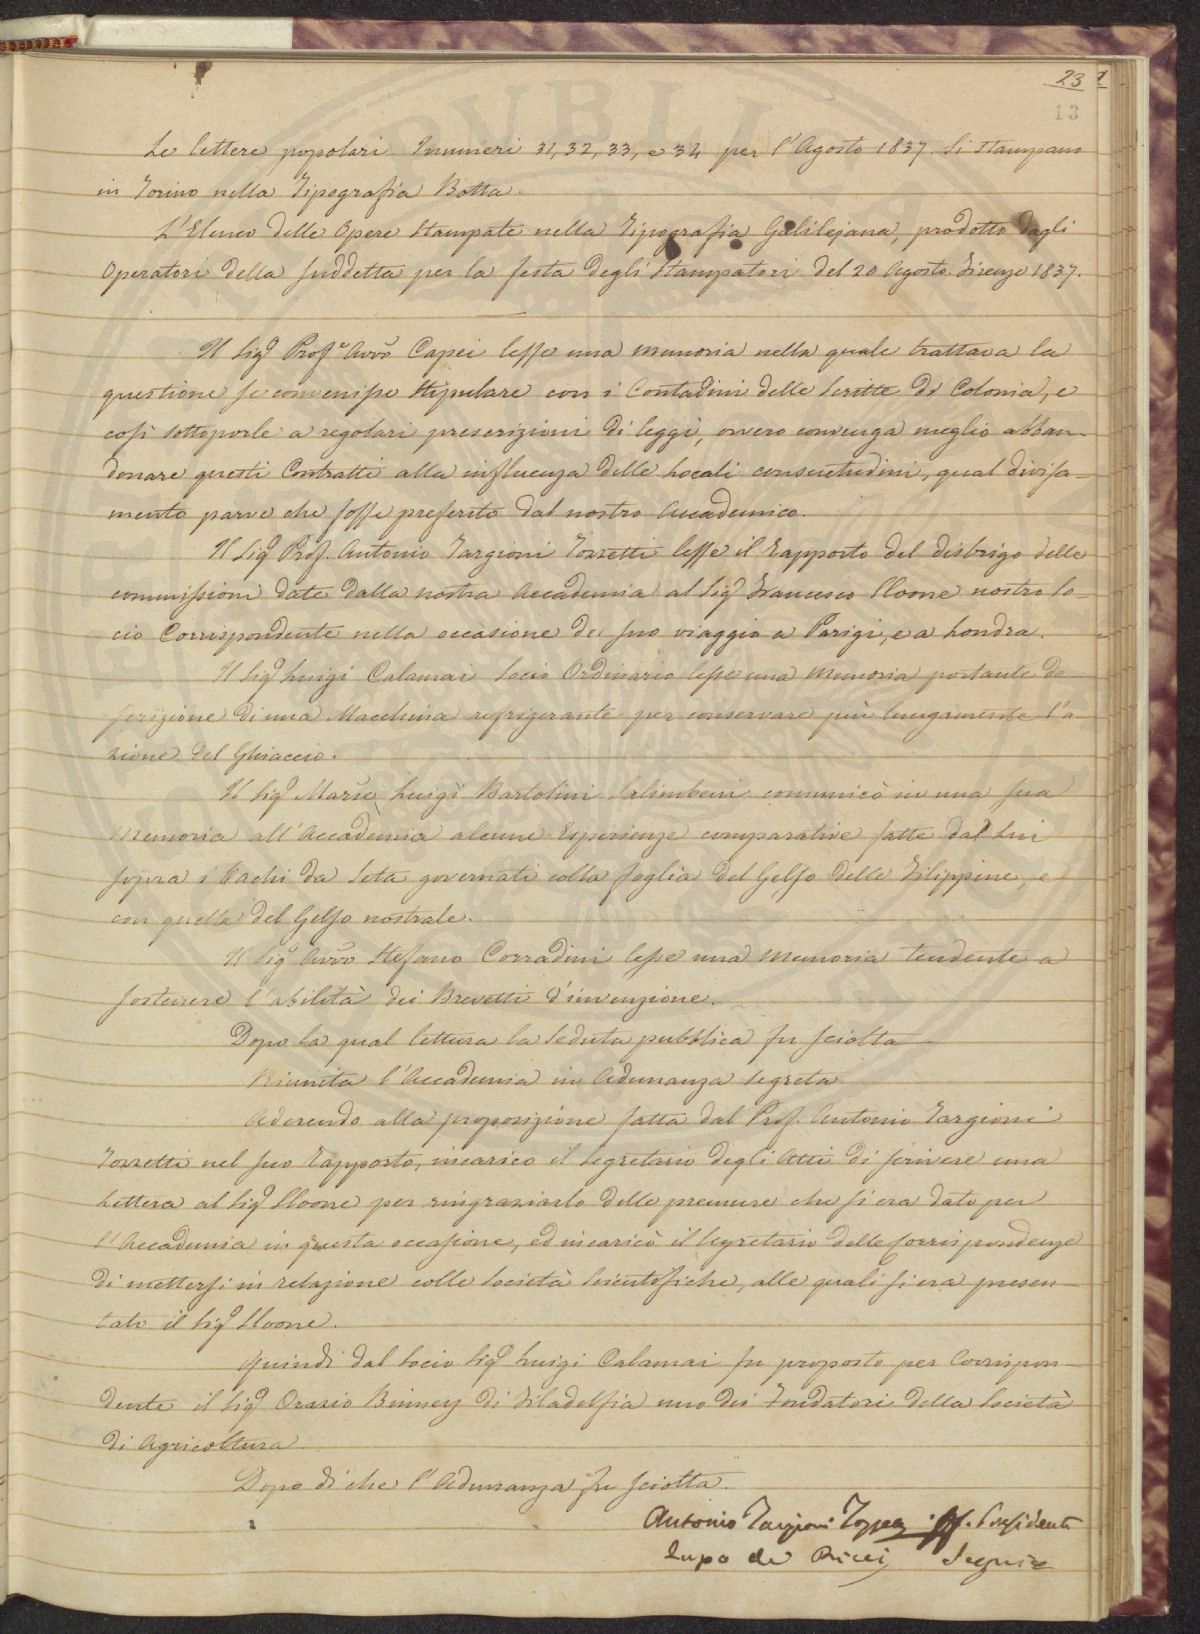 23
13
Le lettere popolari. Inumeri 31, 32, 33, e 34 per l'Agosto 1837. Si stampano
in Torino nella Tipografia Botta.
L'Elenco delle Opere Stampate nella Tipografia Galilejana, prodotto dagli
Operatori della suddetta per la festa degli Stampatori del 20 Agosto. Firenze 1837.
Il Sigr Profe Avvo Capei lesse una memoria nella quale trattava la
questione se convenisse stipulare con i Contadini delle Scritte di Colonia, e
così sottoporle a regolari prescrizioni di leggi, ovvero convenga meglio abban-
donare questi Contratti alla influenza delle Locali consuetudini, qual divisa-
mento parve che fosse preferito dal nostro Accademico.
Il Sigr Prof. Antonio Targioni Tozzetti lesse il Rapporto del disbrigo delle
commissioni date dalla nostra Accademia al Sigr Francesco Sloone nostro So-
cio Corrispondente nella occasione di suo viaggio a Parigi, e a Londra.
Il Sigr Luigi Calamai Socio Ordinario lesse una Memoria portante de-
scrizione di una Macchina refrigerante per conservare più lungamente l'a-
zione del Ghiaccio.
Il Sigr Marse Luigi Bartolini Salimbeni comunicò in una sua
Memoria all'Accademia alcune Esperienze comparative fatte dal Lui
sopra i Bachi da Seta governati colla foglia del Gelso delle Filippine, e
con quella del Gelso nostrale.
Il Sigr Avvo Stefano Corradini lesse una Memoria tendente a
sostenere l'abilità dei Brevetti d'invenzione.
Dopo la qual lettura la Seduta pubblica fu sciolta
Riunita l'Accademia in Adunanza Segreta
Aderendo alla proposizione fatta dal Prof. Antonio Targioni
Tozzetti nel suo Rapporto, incarico il Segretario degli Atti di scrivere una
Lettera al Sigr Sloone per ringraziarlo delle premure che si era dato per
l'Accademia in questa occasione, ed incaricò il Segretario delle Corrispondenze
di mettersi in relazione colle Società Scientifiche, alle quali si era presen-
tato il Sigr Sloone.
Quindi dal Socio Sigr Luigi Calamai fu proposto per Corrispon-
dente il Sigr Orazio Binney di Filadelfia uno dei Fondatori della Società
di Agricoltura
Dopo di che l'Adunanza fu sciolta.
Antonio Targioni Tozzetti ff. Presidente
Lapo de Ricci Segrio